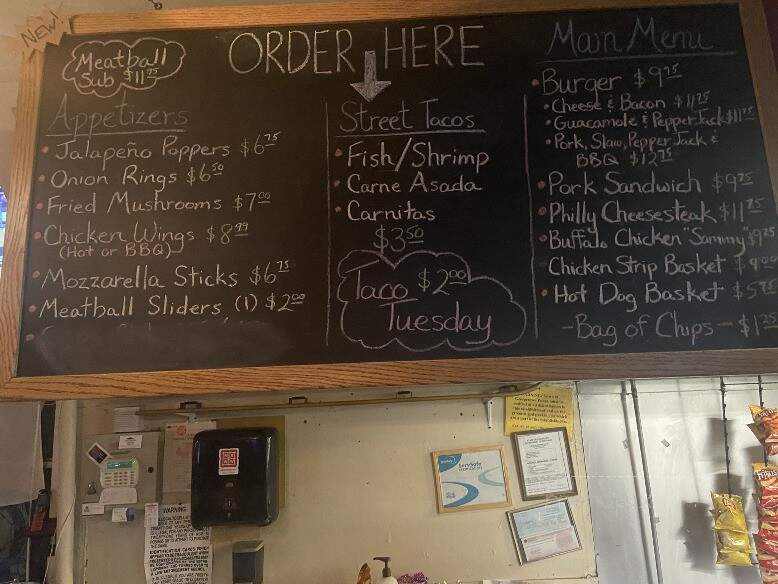 New!
Meatball
Sub $11 75
ORDER HERE
Appetizers
• Jalapeño Poppers $6 75
• Onion Rings $6 50
• Fried Mushrooms $7 00
• Chicken Wings $8 99
(Hot or BBQ)
• Mozzarella Sticks $6 75
• Meatball Sliders (1) $2 00
Street Tacos
• Fish/Shrimp
• Carne Asada
• Carnitas
$3 50
Taco $2 00
Tuesday
Main Menu
• Burger $9 75
• Cheese & Bacon $11 75
• Guacamole & Pepper Jack $11 75
• Pork, Slaw, Pepper Jack &
BBQ $12 75
• Pork Sandwich $9 75
• Philly Cheesesteak $11 75
• Buffalo Chicken "Sammy" $9 75
Chicken Strip Basket $9 00
• Hot Dog Basket $5 75
- Bag of Chips - $1 25
WARNING